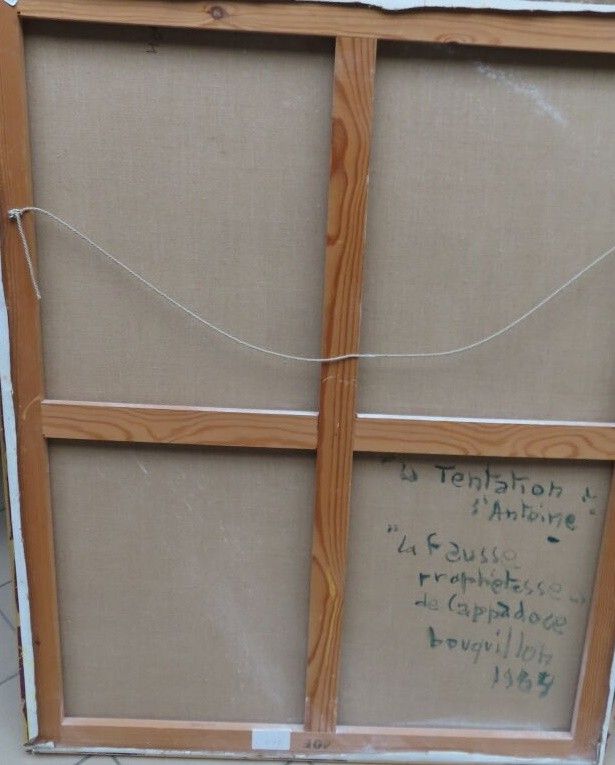 "La Tentation de
St Antoine"
"La fausse
prophétesse"
de Cappadoce
bouquillon
1984
30F